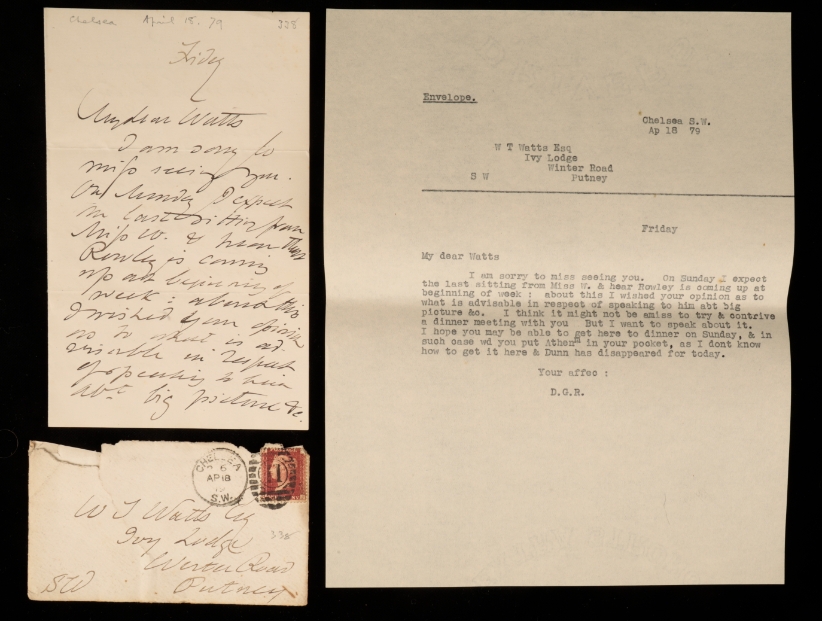 Chelsea April 18. 79 338
Friday
My dear Watts
I am sorry to
miss seeing you.
On Sunday I expect
the last sitting from
Miss W. & hear
Rowley is coming
up at beginning of
week: about this
I wished your opinion
as to what is ad
visable in respect
of speaking to him
abt big picture &c.
CHELSEA
6
AP 18
79
S.W.
W T Watts Esq
Ivy Lodge
338
Werter Road
SW Putney
Envelope.
Chelsea S.W.
Ap 18 79
W T Watts Esq
Ivy Lodge
Winter Road
S W Putney
Friday
My dear Watts
I am sorry to miss seeing you. On Sunday I expect
the last sitting from Miss W. & hear Rowley is coming up at
beginning of week : about this I wished your opinion as to
what is advisable in respect of speaking to him abt big
picture &c. I think it might not be amiss to try & contrive
a dinner meeting with you But I want to speak about it.
I hope you may be able to get here to dinner on Sunday, & in
such case wd you put Athenm in your pocket, as I dont know
how to get it here & Dunn has disappeared for today.
Your affec :
D.G.R.